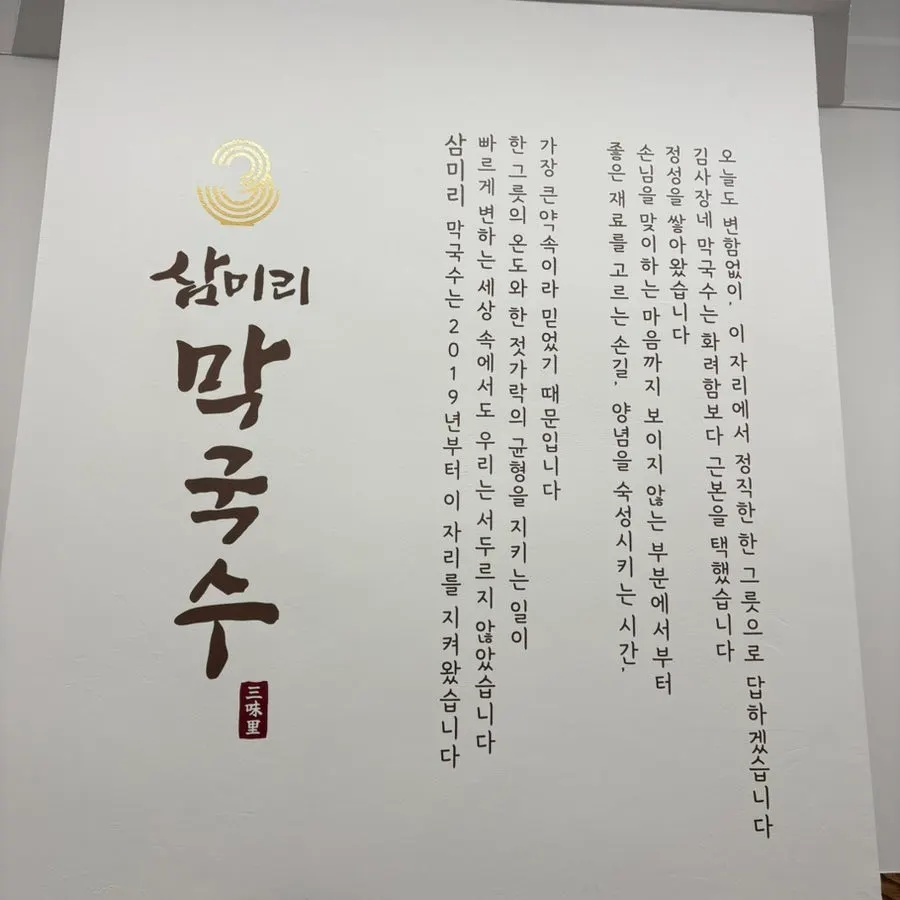 3
삼미리
막국수
三味里
삼미리 막국수는 2019년부터 이 자리를 지켜왔습니다
빠르게 변하는 세상 속에서도 우리는 서두르지 않았습니다
한 그릇의 온도와 한 젓가락의 균형을 지키는 일이
가장 큰 약속이라 믿었기 때문입니다
좋은 재료를 고르는 손길, 양념을 숙성시키는 시간,
손님을 맞이하는 마음까지 보이지 않는 부분에서부터
정성을 쌓아왔습니다
김사장네 막국수는 화려함보다 근본을 택했습니다
오늘도 변함없이, 이 자리에서 정직한 한 그릇으로 답하겠습니다